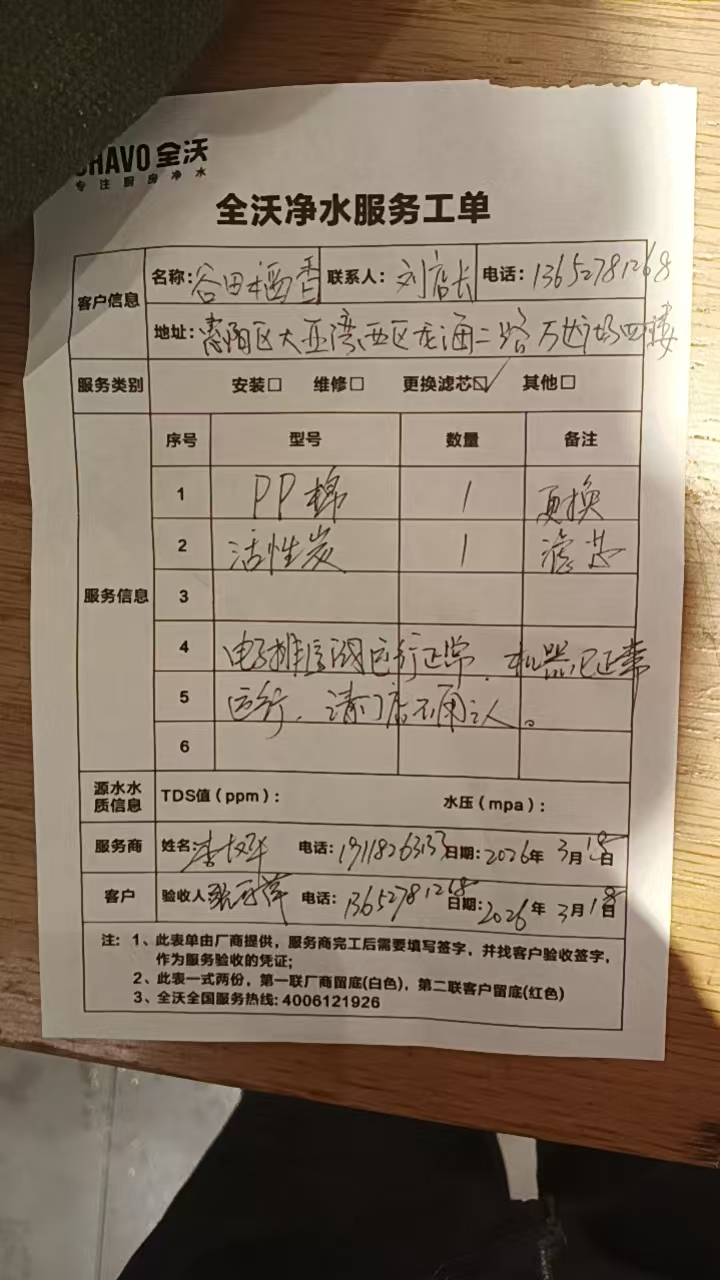 CHAVO 全沃
专注厨房净水
全沃净水服务工单
客户信息
名称：谷田稻香 联系人：刘店长 电话：13652781268
地址：惠阳区大亚湾西区龙海二路万达广场四楼
服务类别 安装□ 维修□ 更换滤芯☑ 其他□
服务信息
序号 型号 数量 备注
1 PP棉 1 更换
2 活性炭 1 滤芯
3
4 电子排渣阀运行正常，机器已正常
5 运行，请门店不用
6
源水水质信息 TDS值（ppm）： 水压（mpa）：
服务商 姓名: 电话: 日期: 2026年 3月18日
客户 验收人 电话: 13652781268 日期: 2026年 3月18日
注：1、此表单由厂商提供，服务商完工后需要填写签字，并找客户验收签字，
作为服务验收的凭证；
2、此表一式两份，第一联厂商留底(白色)，第二联客户留底(红色)
3、全沃全国服务热线: 4006121926